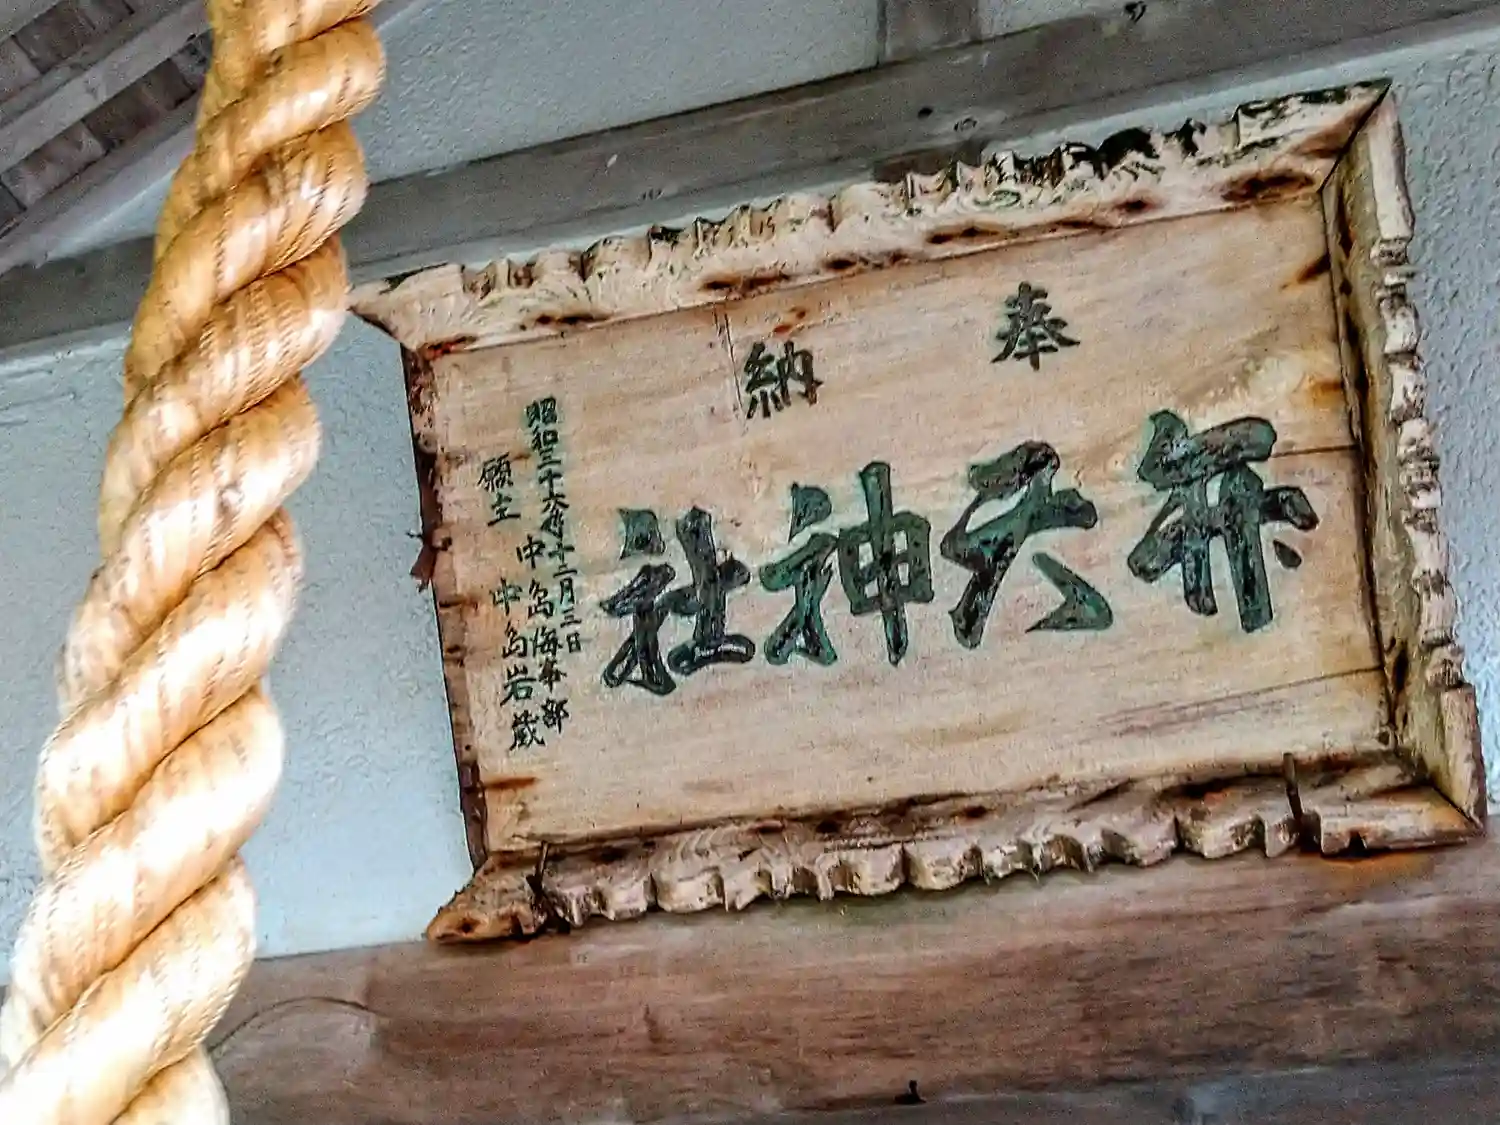 奉納
弁天神社
昭和三十六年十二月三日
中島海事部
願主 中島岩蔵